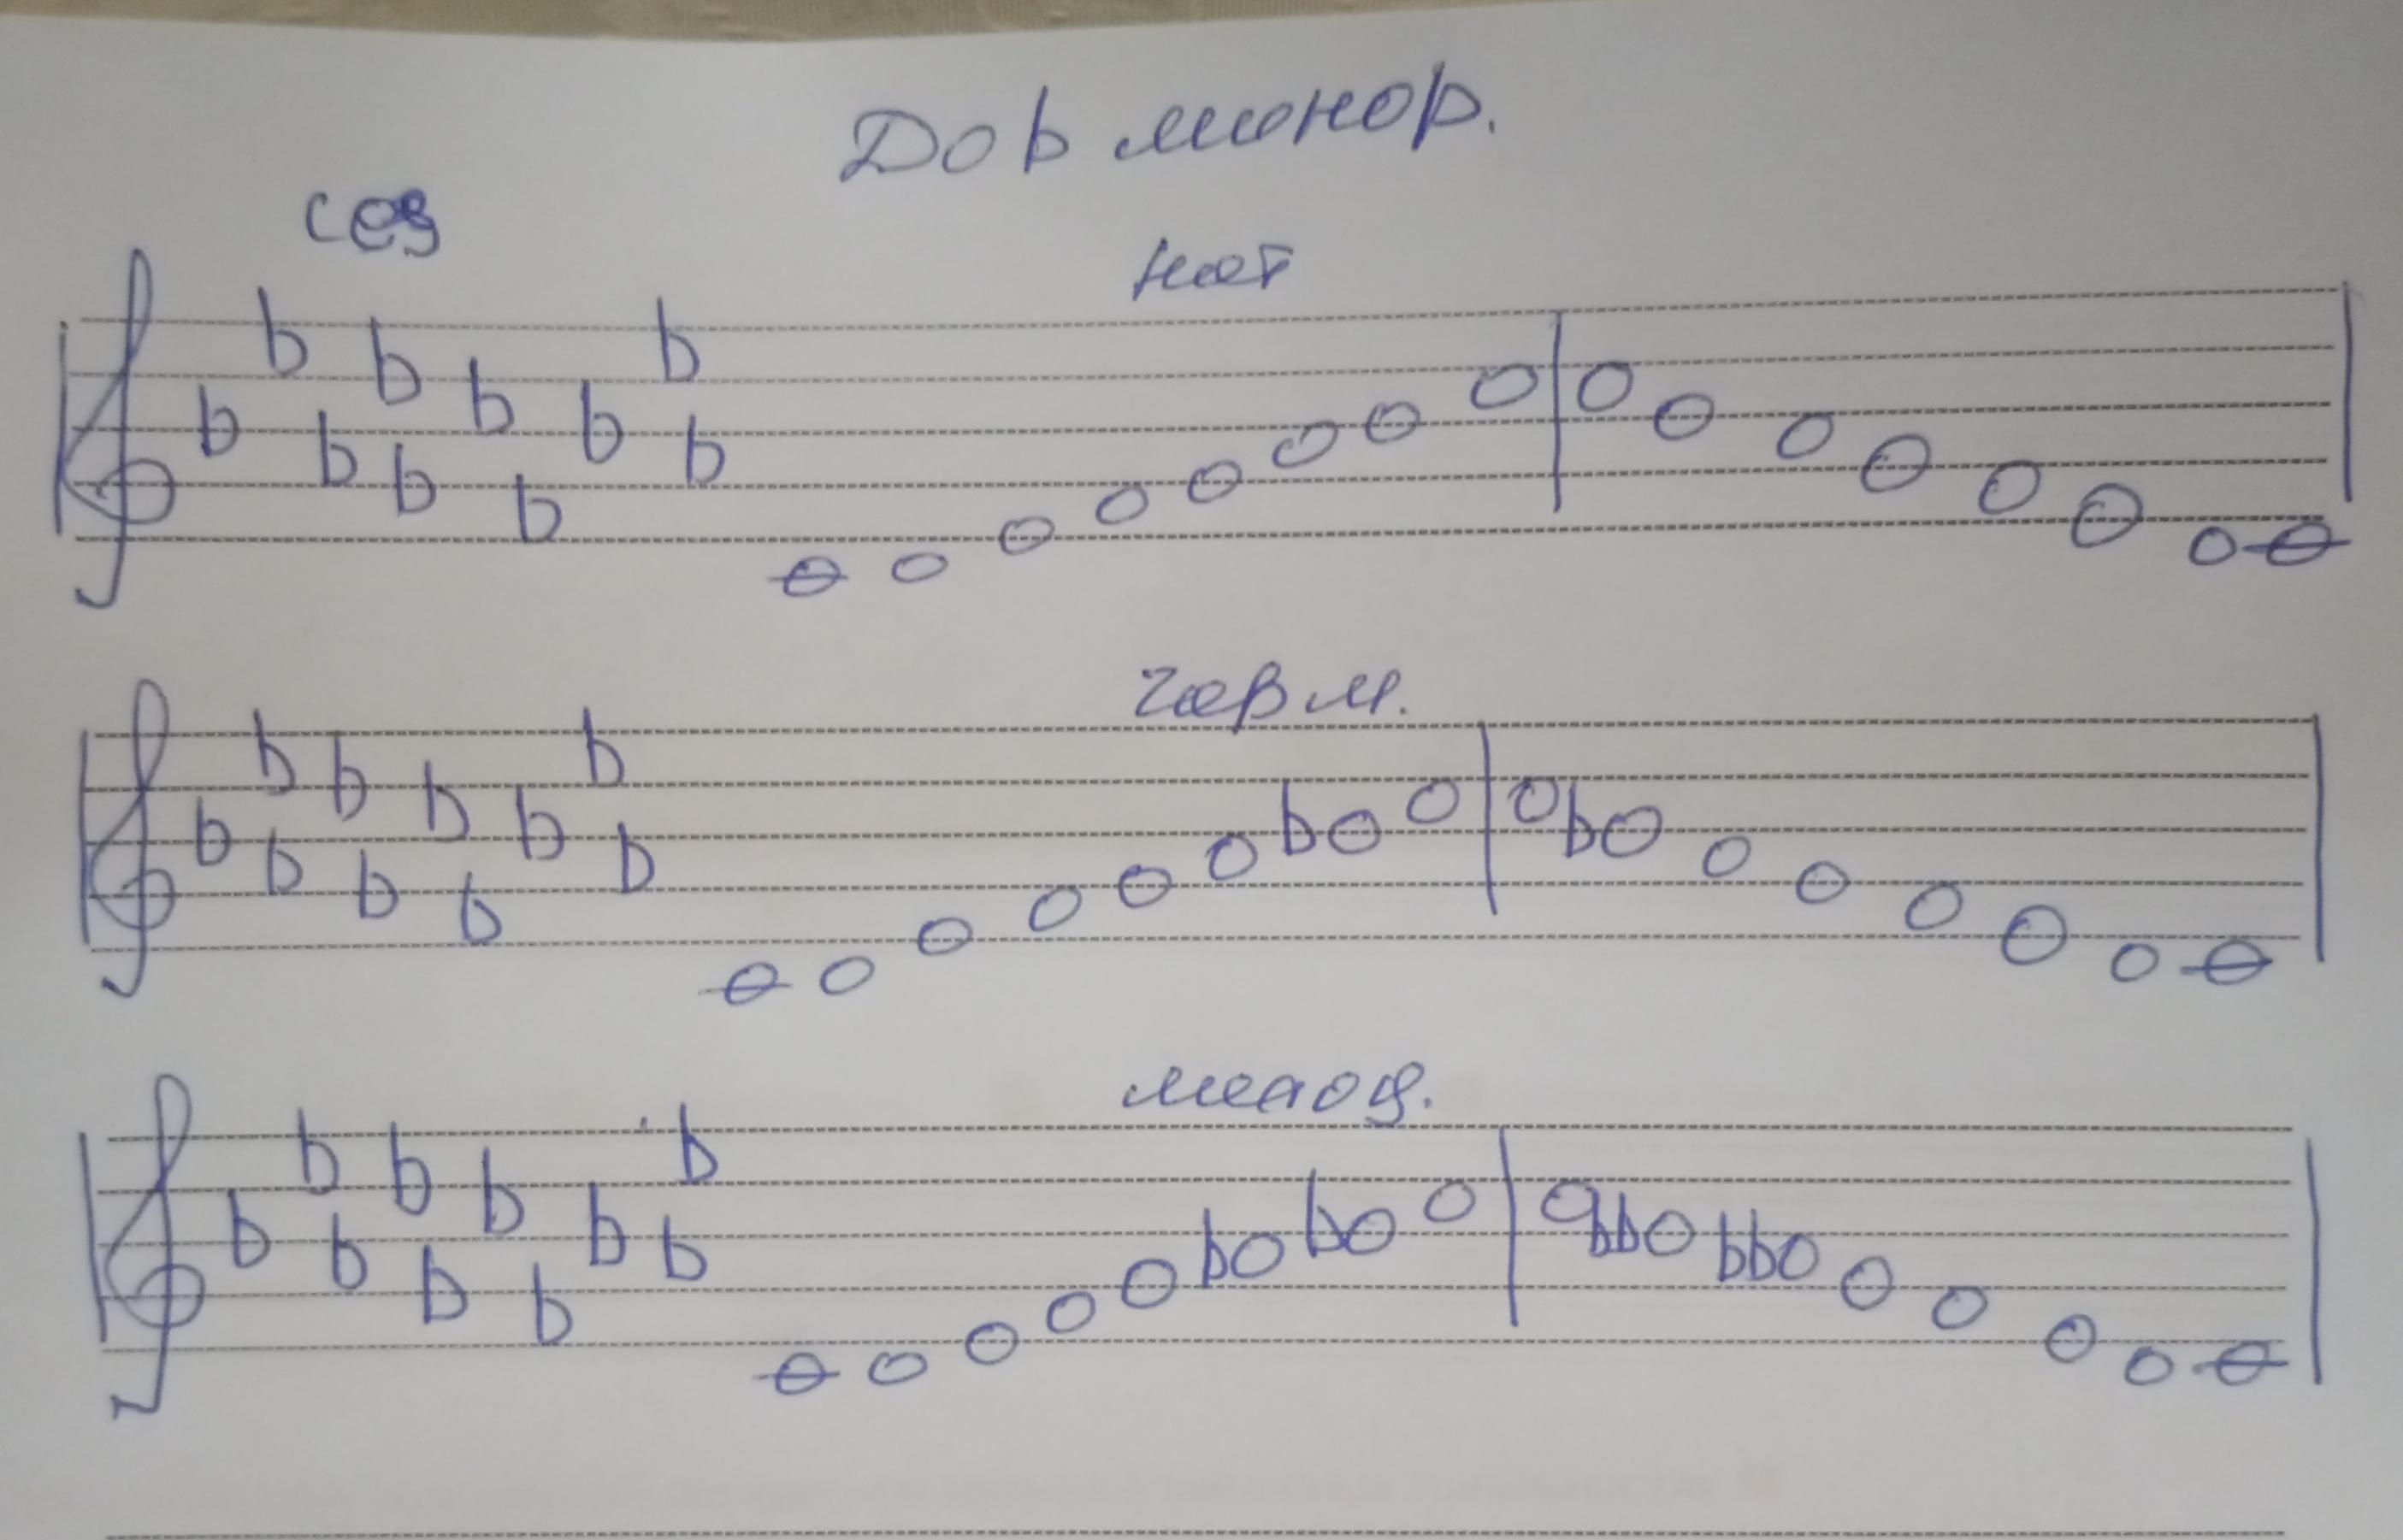 До b минор.
ces
нат
гарм.
мелод.